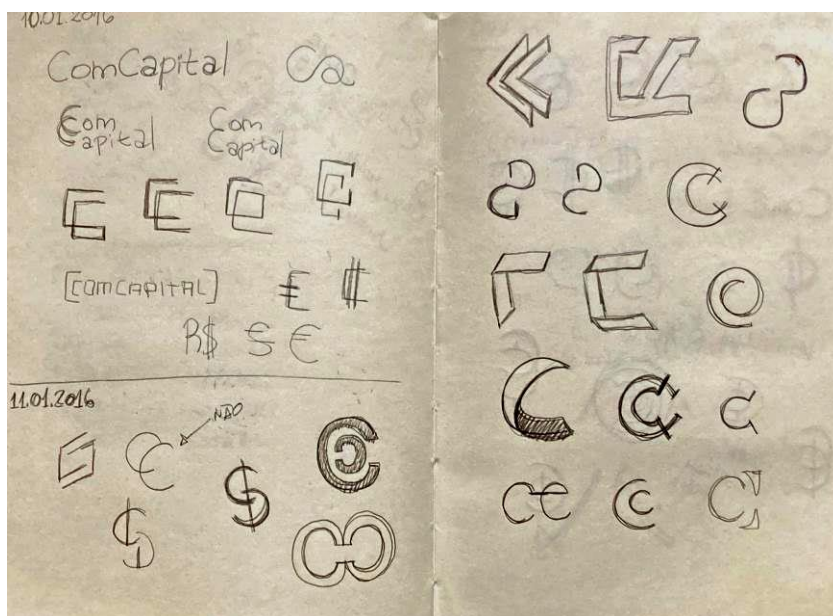 10.01.2016
ComCapital
Ca
Com
Capital
Com
Capital
[COMCAPITAL]
€
R$ € €
11.01.2016
NÃO
$